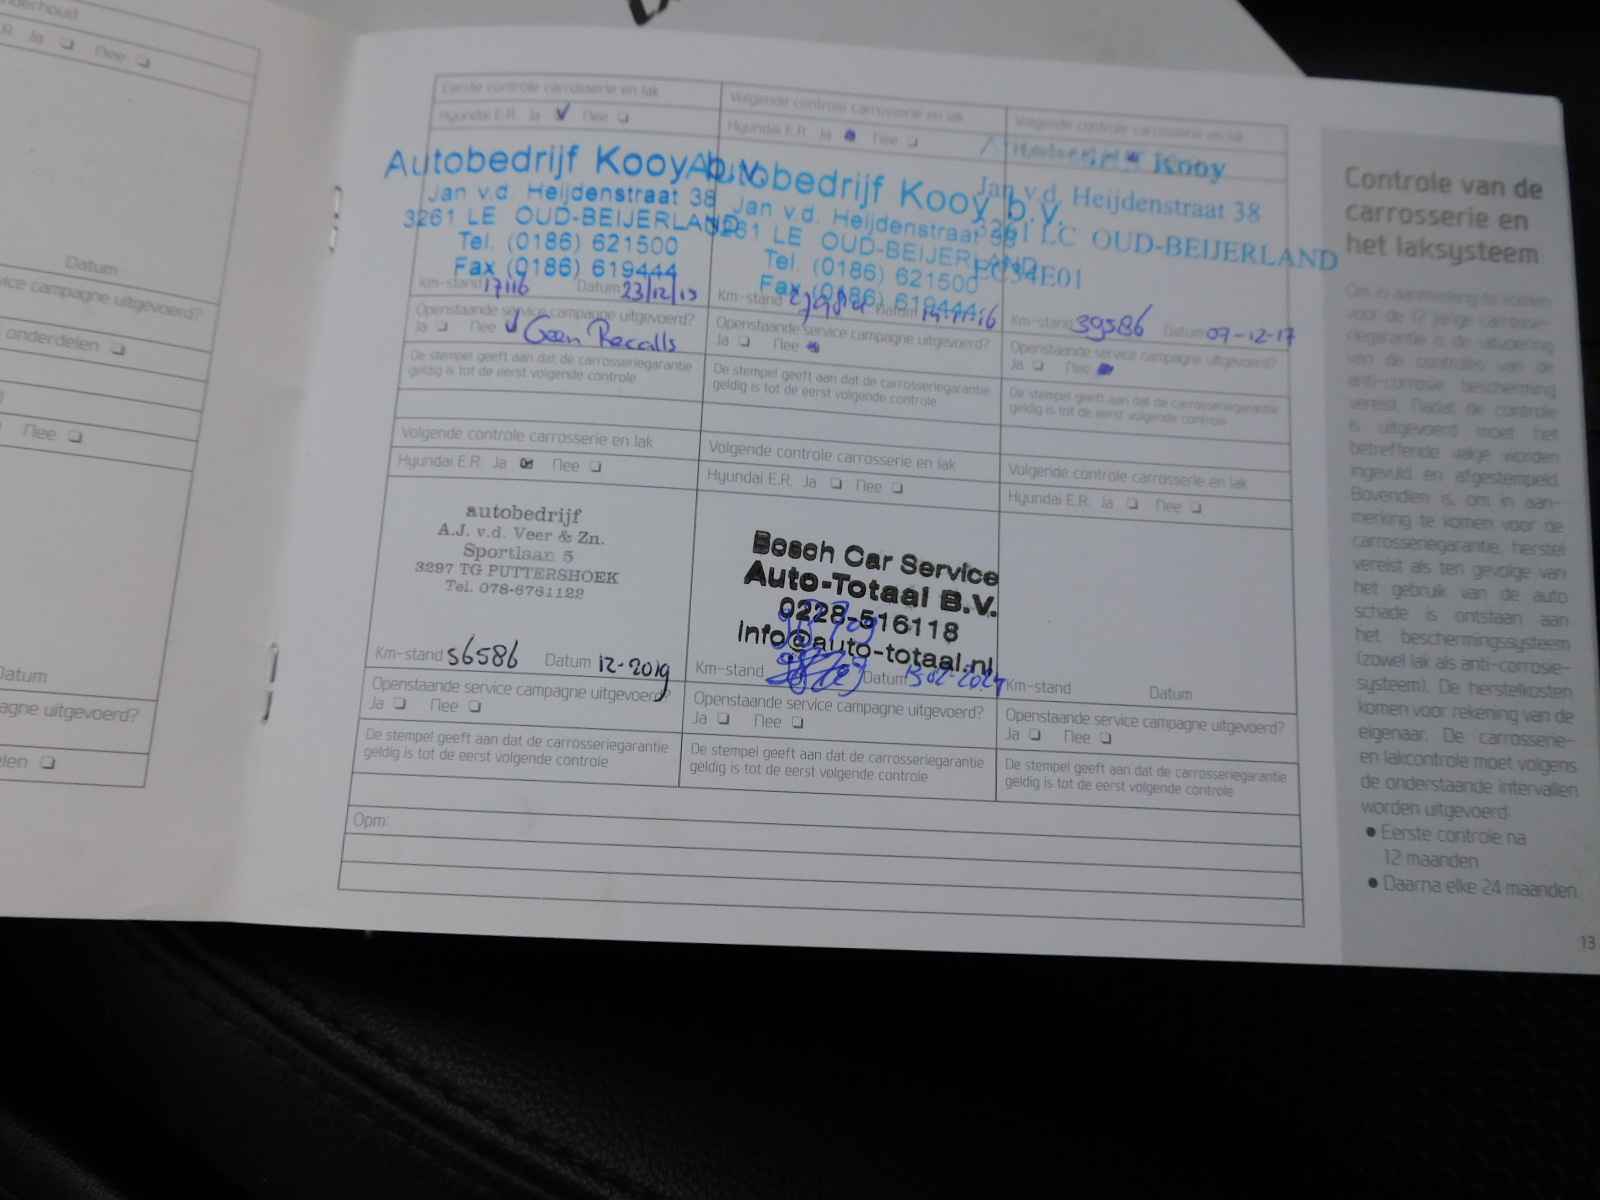 nderhoud
E.R. Ja Nee
Datum
vice campagne uitgevoerd?
onderdelen
Nee
Datum
agne uitgevoerd?
elen
Eerste controle carrosserie en lak
Hyundai E.R. Ja Nee
Autobedrijf Kooy b.v.
Jan v.d. Heijdenstraat 38
3261 LE OUD-BEIJERLAND
Tel. (0186) 621500
Fax (0186) 619444
Km-stand 17116 Datum 23/12/15
Openstaande service campagne uitgevoerd?
Ja Nee Geen Recalls
De stempel geeft aan dat de carrosseriegarantie
geldig is tot de eerst volgende controle
Volgende controle carrosserie en lak
Hyundai E.R. Ja Nee
Autobedrijf Kooy b.v.
Jan v.d. Heijdenstraat 38
3261 LE OUD-BEIJERLAND
Tel. (0186) 621500
Fax (0186) 619444
Km-stand Datum
Openstaande service campagne uitgevoerd?
Ja Nee
De stempel geeft aan dat de carrosseriegarantie
geldig is tot de eerst volgende controle
Volgende controle carrosserie en lak
Kooy
Jan v.d. Heijdenstraat 38
3261 LC OUD-BEIJERLAND
Km-stand 39586 Datum 07-12-17
Openstaande service campagne uitgevoerd?
Ja Nee
De stempel geeft aan dat de carrosseriegarantie
geldig is tot de eerst volgende controle
Volgende controle carrosserie en lak
Hyundai E.R. Ja Nee
autobedrijf
A.J. v.d. Veer & Zn.
Sportlaan 5
3297 TG PUTTERSHOEK
Tel. 078-6761122
Km-stand 56586 Datum 12-2019
Openstaande service campagne uitgevoerd?
Ja Nee
De stempel geeft aan dat de carrosseriegarantie
geldig is tot de eerst volgende controle
Volgende controle carrosserie en lak
Hyundai E.R. Ja Nee
Bosch Car Service
Auto-Totaal B.V.
0228-516118
info@auto-totaal.nl
Km-stand Datum
Openstaande service campagne uitgevoerd?
Ja Nee
De stempel geeft aan dat de carrosseriegarantie
geldig is tot de eerst volgende controle
Volgende controle carrosserie en lak
Hyundai E.R. Ja Nee
Km-stand Datum
Openstaande service campagne uitgevoerd?
Ja Nee
De stempel geeft aan dat de carrosseriegarantie
geldig is tot de eerst volgende controle
Opm:
Controle van de
carrosserie en
het laksysteem
Om in aanmerking te komen
voor de 12 jarige carrosse-
riegarantie is de uitvoering
van de controles van de
anti-corrosie bescherming
vereist. Nadat de controle
is uitgevoerd moet het
betreffende vakje worden
ingevuld en afgestempeld.
Bovendien is, om in aan-
merking te komen voor de
carrosseriegarantie, herstel
vereist als ten gevolge van
het gebruik van de auto
schade is ontstaan aan
het beschermingssysteem
(zowel lak als anti-corrosie-
systeem). De herstelkosten
komen voor rekening van de
eigenaar. De carrosserie-
en lakcontrole moet volgens
de onderstaande intervallen
worden uitgevoerd:
• Eerste controle na
12 maanden
• Daarna elke 24 maanden
13